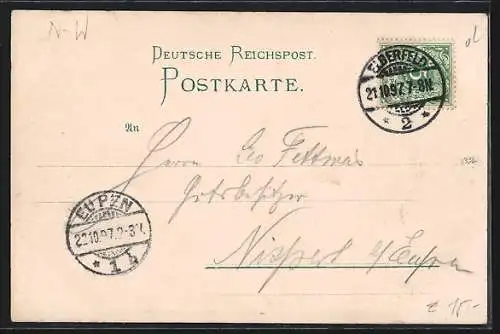 N-W
DEUTSCHE REICHSPOST.
POSTKARTE.
ELBERFELD
21.10.97.7-8N.
* 2 *
An
Herrn Geo Fettweis
Gutsbesitzer
Nispert b/Eupen
EUPEN
22.10.97.2-3N.
* 1 b
€ 15.-